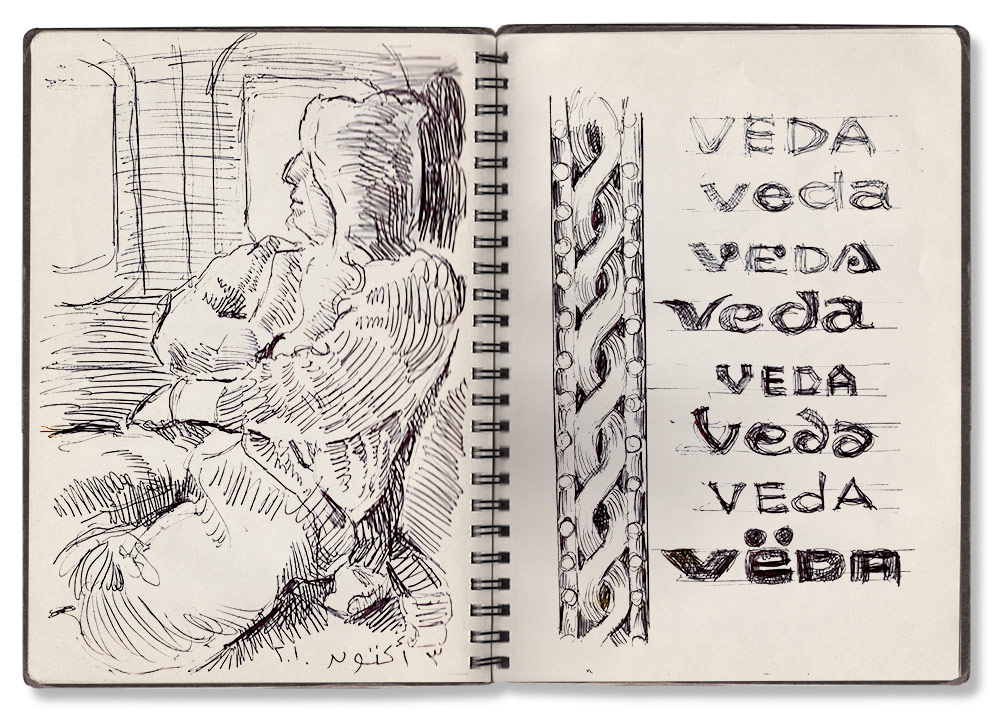 ٣ أكتوبر ٢٠١٠
VEDA
veda
VEDA
veda
VEDA
veda
VEdA
VËDA